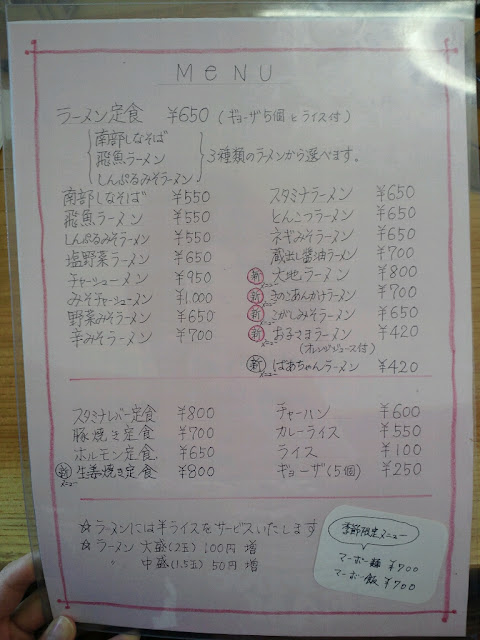 MENU
ラーメン定食 ¥650 (ギョーザ5個とライス付)
南部しなそば
飛魚ラーメン
しんぷるみそラーメン
3種類のラーメンから選べます。
南部しなそば ¥550
飛魚ラーメン ¥550
しんぷるみそラーメン ¥550
塩野菜ラーメン ¥650
チャーシューメン ¥950
みそチャーシューメン ¥1.000
野菜みそラーメン ¥650
辛みそラーメン ¥700
スタミナラーメン ¥650
とんこつラーメン ¥650
ネギみそラーメン ¥650
蔵出し醤油ラーメン ¥700
新メニュー 大地のラーメン ¥800
新メニュー きのこあんかけラーメン ¥700
新メニュー こがしみそラーメン ¥650
新メニュー お子さまラーメン ¥420
(オレンジジュース付)
新メニュー ばあちゃんラーメン ¥420
スタミナレバー定食 ¥800
豚焼き定食 ¥700
ホルモン定食 ¥650
新メニュー 生姜焼き定食 ¥800
チャーハン ¥600
カレーライス ¥550
ライス ¥100
ギョーザ(5個) ¥250
☆ ラーメンには半ライスをサービスいたします
☆ ラーメン 大盛(2玉) 100円増
〃 中盛(1.5玉) 50円増
季節限定メニュー
マーボー麺 ¥700
マーボー飯 ¥700